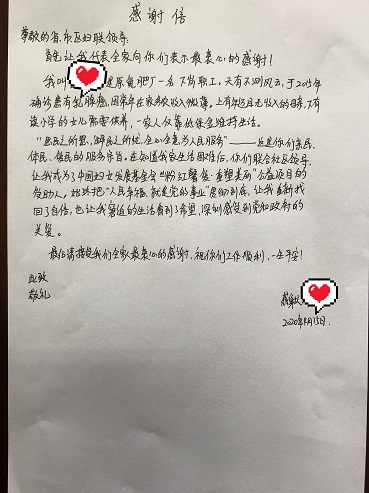 感谢信
尊敬的省、市区妇联领导:
首先让我代表全家向你们表示最衷心的感谢!
我叫 是原氮肥厂一名下岗职工。天有不测风云,于2015年
确诊患有乳腺癌,因常年在家务农收入微薄。上有年迈且无收入的母亲,下有
读小学的女儿都需供养,一家人仅靠低保金维持生活。
“思民之所思,解民之所忧,全心全意为人民服务”——这是你们亲民、
体民、爱民的服务宗旨。在知道我家生活困难后,你们联合社区领导,
让我成为了中国妇女发展基金会“粉红馨爱·重塑美丽”公益项目的
受助人。始终把“人民幸福,就是党的事业”贯彻到底,让我重新找
回了自信,也让我窘迫的生活看到了希望,深刻感受到党和政府的
关爱。
最后请接受我们全家最衷心的感谢,祝你们工作顺利,一生平安!
此致
敬礼
感谢人
2020年4月15日.